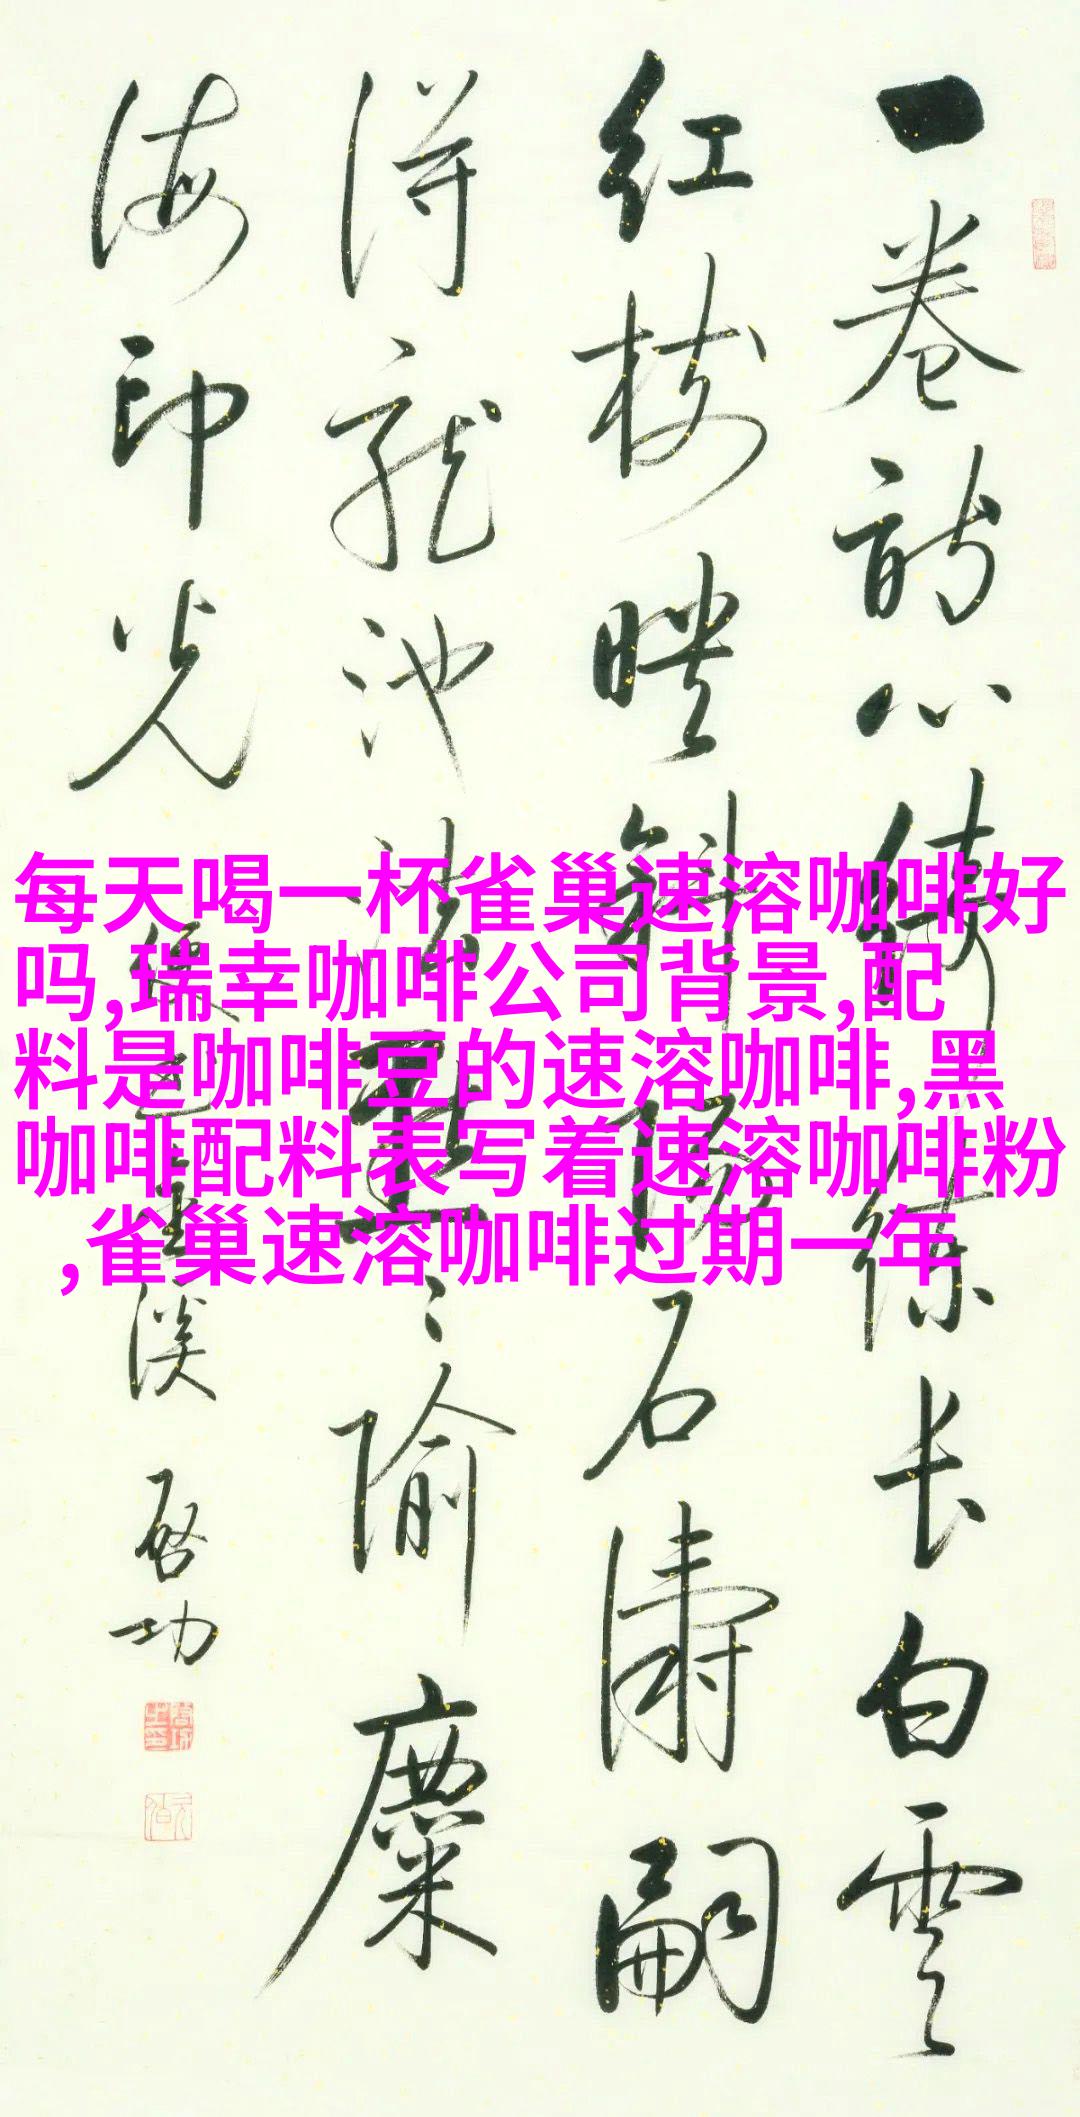 一卷心长白雲
红樹斜石濤嗣
得龍池隃麋
海印光
啟功
每天喝一杯雀巢速溶咖啡好
吗,瑞幸咖啡公司背景,配
料是咖啡豆的速溶咖啡,黑
咖啡配料表写着速溶咖啡粉
,雀巢速溶咖啡过期一年